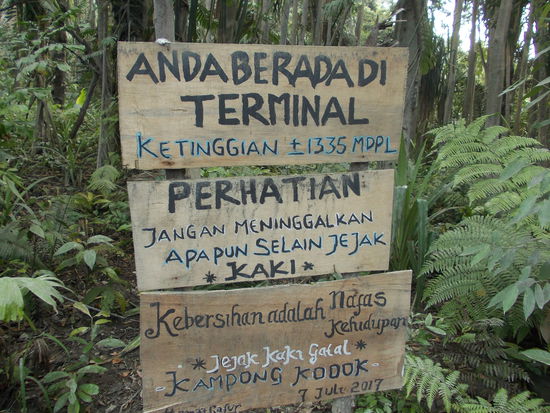 ANDA BERADA DI
TERMINAL
KETINGGIAN ±1335 MDPL
PERHATIAN
JANGAN MENINGGALKAN
APAPUN SELAIN JEJAK
* KAKI *
Kebersihan adalah Nafas
Kehidupan
* Jejak Kaki Gatal *
- KAMPONG KODOK -
7 Juli 2017